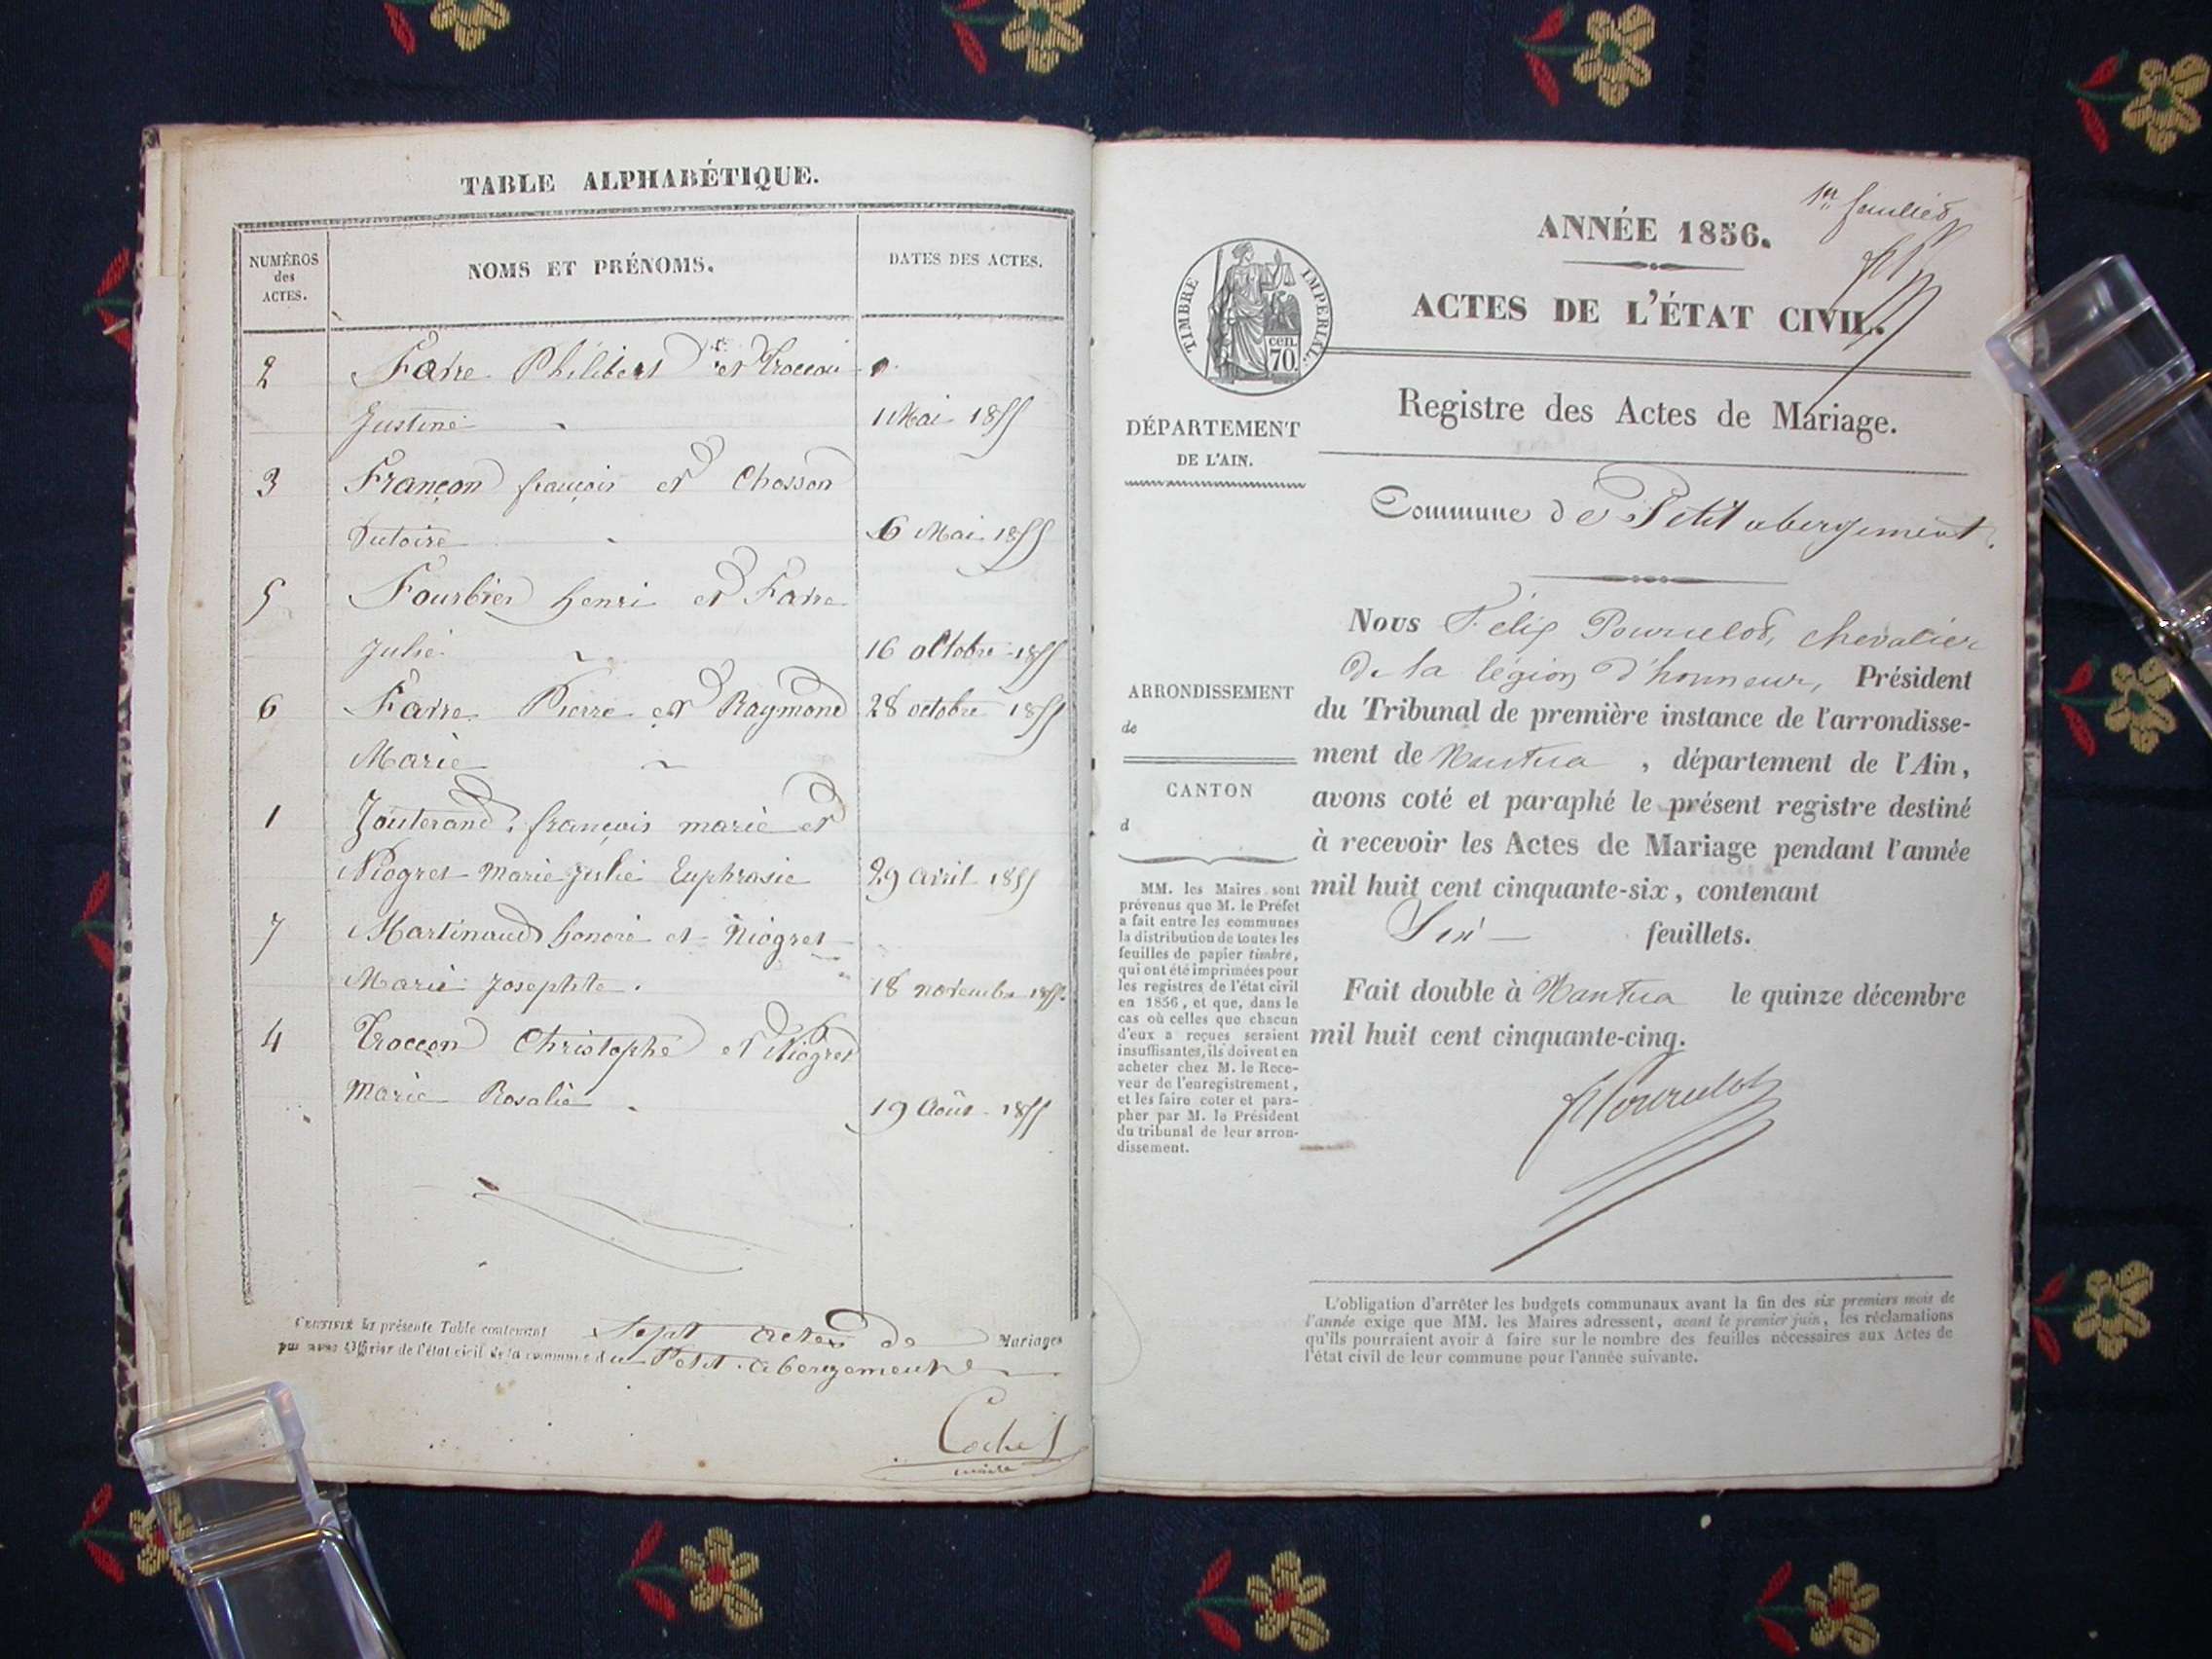 TABLE ALPHABÉTIQUE.
NUMÉROS
des
ACTES.
NOMS ET PRÉNOMS.
DATES DES ACTES.
2 Favre Philibert et Troccon
Justine 1 Mai 1855
3 Françon françois et Chosson
6 Mai 1855
5 Fourbier henri et Favre
Julie 16 octobre 1855
6 Favre Pierre et Raymond 28 octobre 1855
Marie
1 Jouterand françois marie et
Niogret Marie Julie Euphrasie 29 avril 1855
7 Martinaud honoré et Niogret
Marie Josephte. 18 novembre 1855
4 Troccon Christophe et Niogret
Marie Rosalie 19 Août 1855
CERTIFIÉ la présente Table contenant Sept actes de Mariages
par nous Officier de l'état civil de la commune du Petit abergement
Cochet
maire
1er feuillet
ANNÉE 1856.
ACTES DE L'ÉTAT CIVIL.
TIMBRE IMPÉRIAL.
cen.
70.
Registre des Actes de Mariage.
DÉPARTEMENT
DE L'AIN.
Commune de Petit abergement.
Nous Félix Pourcelot, chevalier
de la légion d'honneur, Président
du Tribunal de première instance de l'arrondisse-
ment de Nantua, département de l'Ain,
avons coté et paraphé le présent registre destiné
à recevoir les Actes de Mariage pendant l'année
mil huit cent cinquante-six, contenant
Six feuillets.
Fait double à Nantua le quinze décembre
mil huit cent cinquante-cinq.
FPourcelot
ARRONDISSEMENT
de
CANTON
d
MM. les Maires sont
prévenus que M. le Préfet
a fait entre les communes
la distribution de toutes les
feuilles de papier timbre,
qui ont été imprimées pour
les registres de l'état civil
en 1856, et que, dans le
cas où celles que chacun
d'eux a reçues seraient
insuffisantes, ils doivent en
acheter chez M. le Rece-
veur de l'enregistrement,
et les faire coter et para-
pher par M. le Président
du tribunal de leur arron-
dissement.
L'obligation d'arrêter les budgets communaux avant la fin des six premiers mois de
l'année exige que MM. les Maires adressent, avant le premier juin, les réclamations
qu'ils pourraient avoir à faire sur le nombre des feuilles nécessaires aux Actes de
l'état civil de leur commune pour l'année suivante.